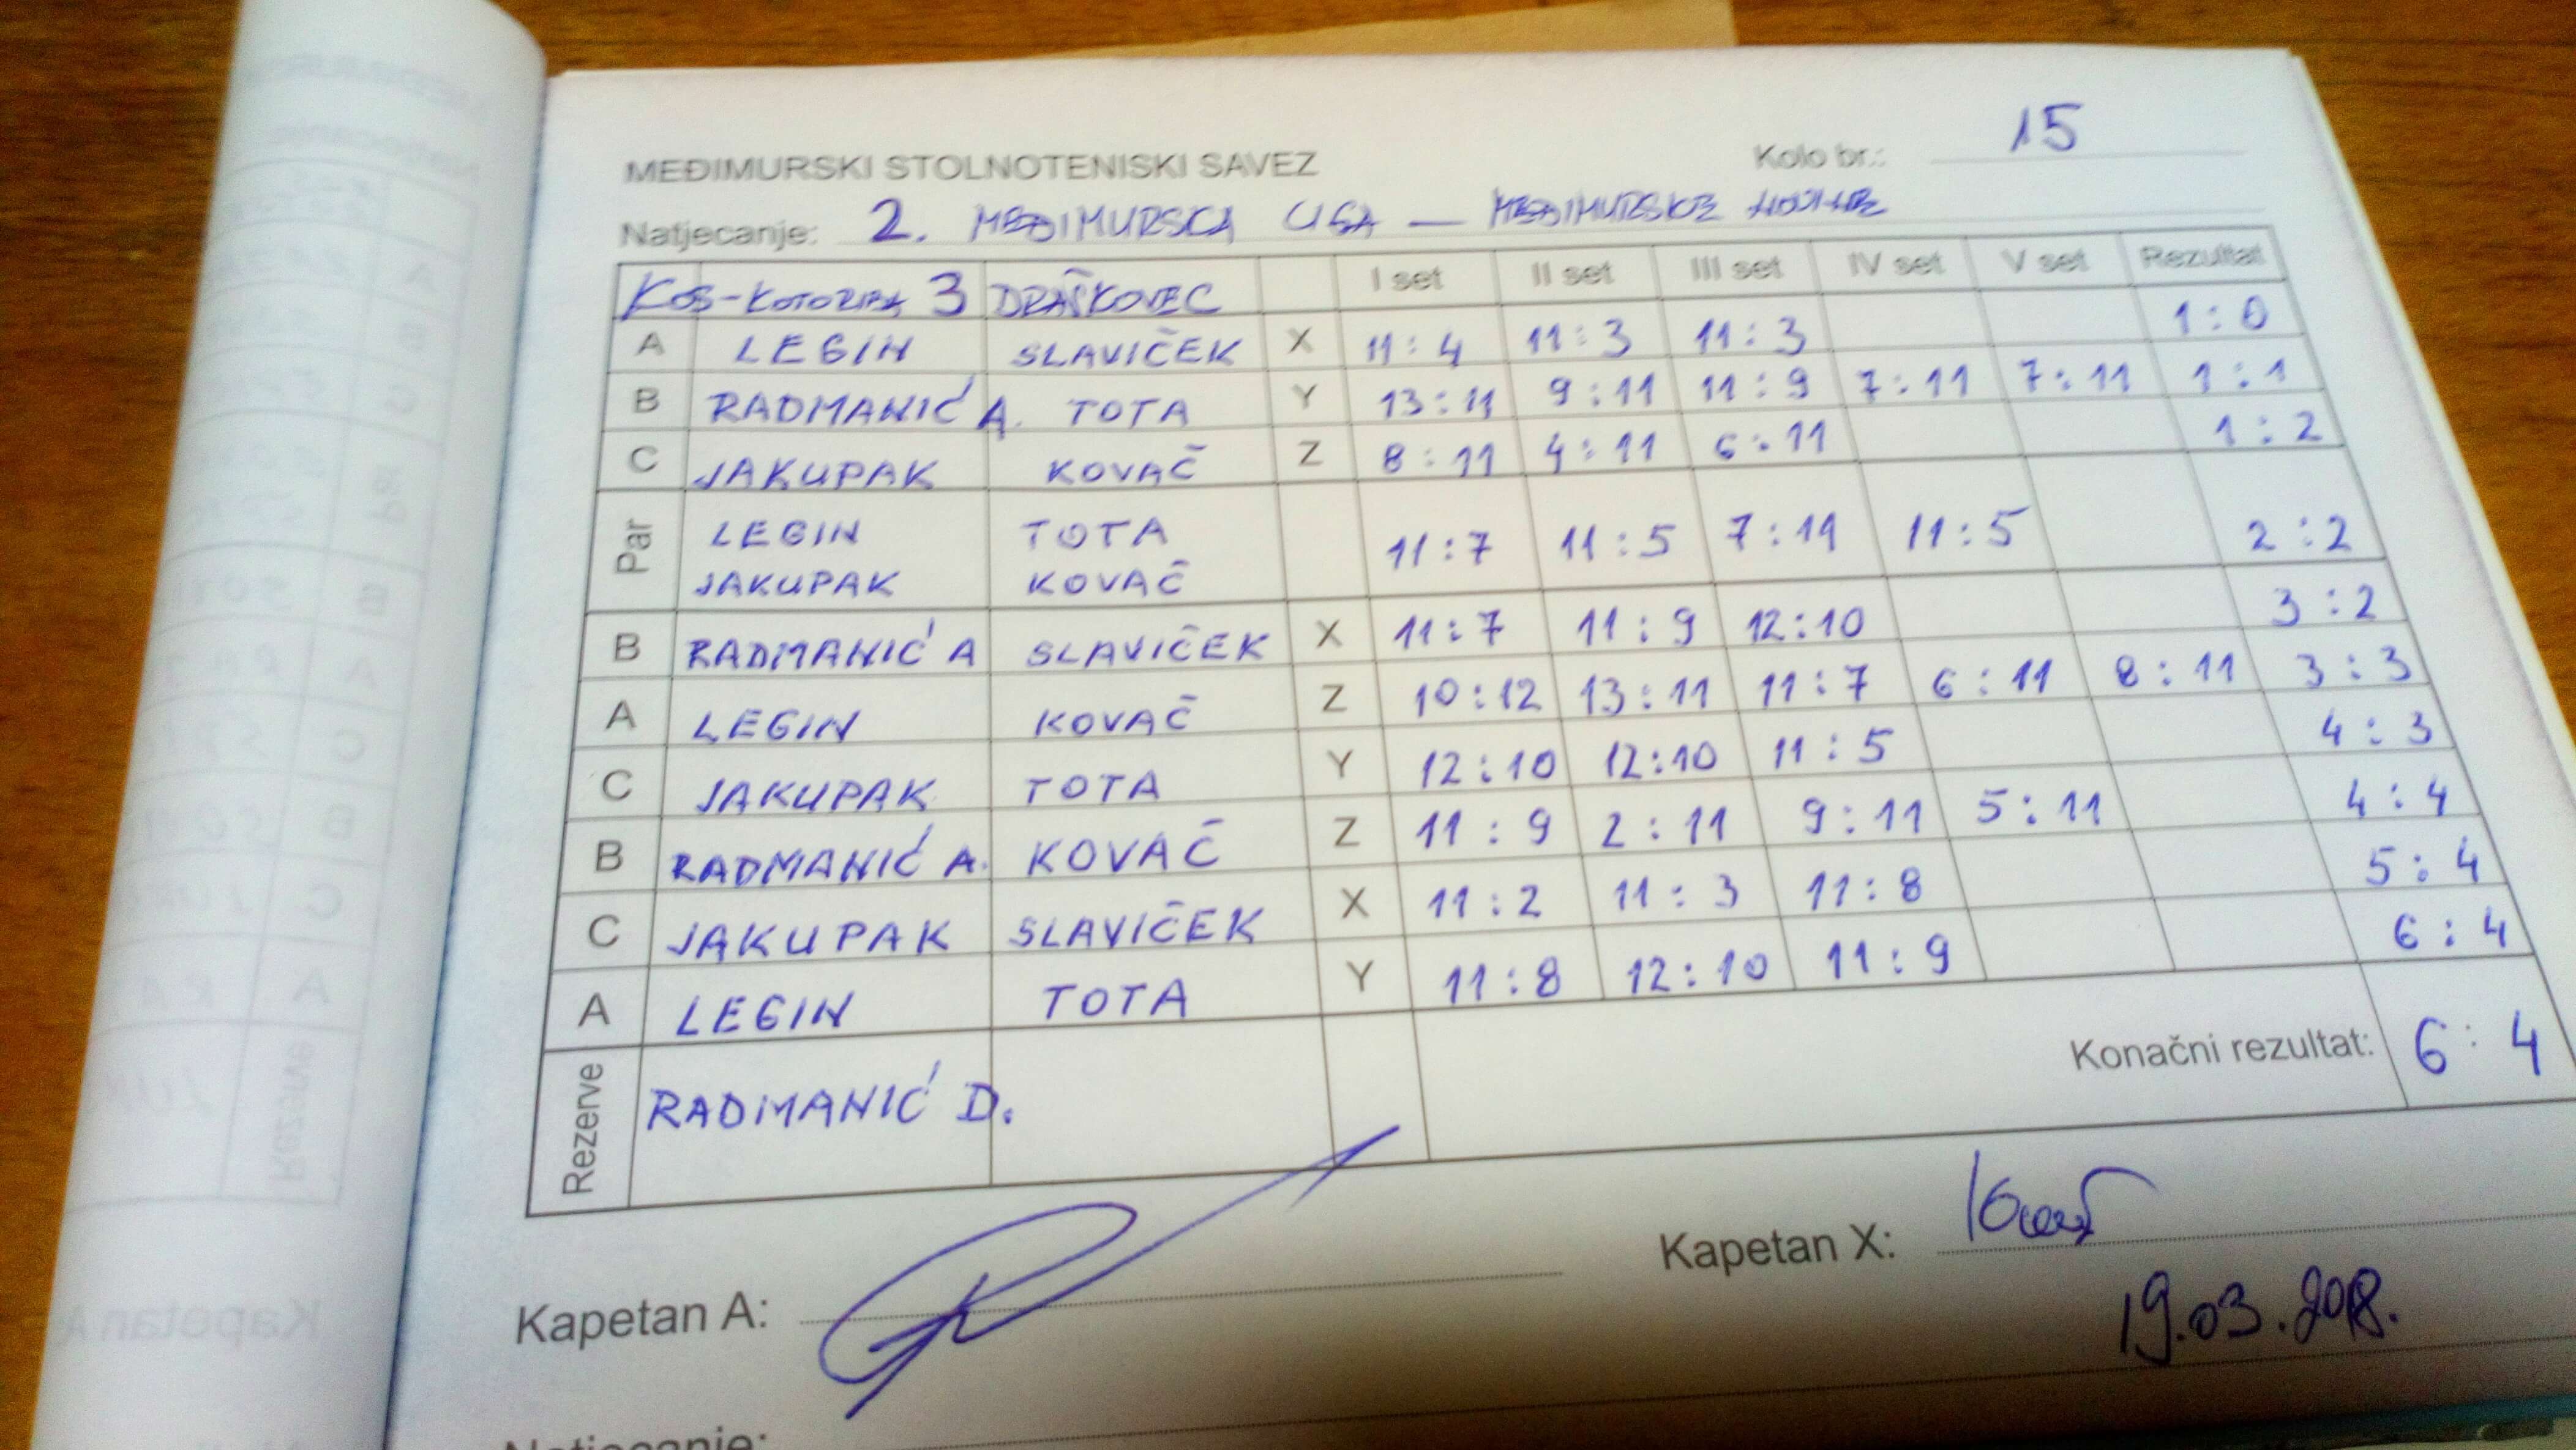 MEĐIMURSKI STOLNOTENISKI SAVEZ
Kolo br.: 15
Natjecanje: 2. MEĐIMURSKA LIGA — MEĐIMURSKE NOVINE
KOS-KOTORIBA 3 DRAŠKOVEC I set II set III set IV set V set Rezultat
A LEGIN SLAVIČEK X 11:4 11:3 11:3 1:0
B RADMANIĆ A. TOTA Y 13:11 9:11 11:9 7:11 7:11 1:1
C JAKUPAK KOVAČ Z 8:11 4:11 6:11 1:2
Par LEGIN TOTA 11:7 11:5 7:11 11:5 2:2
JAKUPAK KOVAČ
B RADMANIĆ A SLAVIČEK X 11:7 11:9 12:10 3:2
A LEGIN KOVAČ Z 10:12 13:11 11:7 6:11 8:11 3:3
C JAKUPAK TOTA Y 12:10 12:10 11:5 4:3
B RADMANIĆ A. KOVAČ Z 11:9 2:11 9:11 5:11 4:4
C JAKUPAK SLAVIČEK X 11:2 11:3 11:8 5:4
A LEGIN TOTA Y 11:8 12:10 11:9 6:4
Rezerve RADMANIĆ D. Konačni rezultat: 6:4
Kapetan A: Kapetan X:
19.03.2018.
Natjecanje: